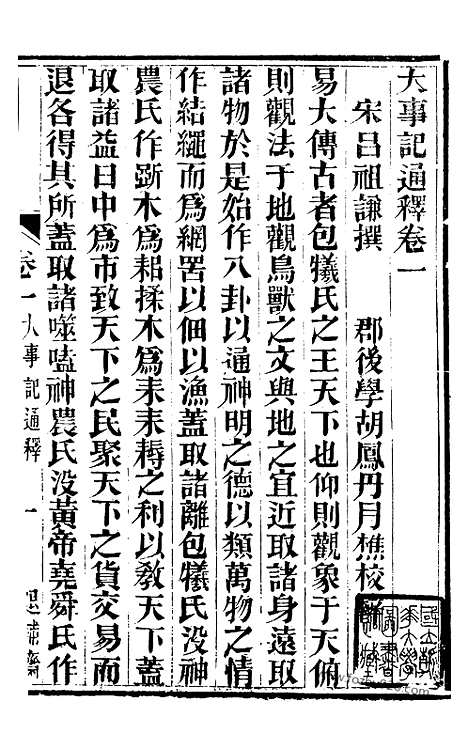 大事記通釋卷一
宋呂祖謙撰 郡後學胡鳳丹月樵校
易大傳古者包犧氏之王天下也仰則觀象于天俯
則觀法于地觀鳥獸之文與地之宜近取諸身遠取
諸物於是始作八卦以通神明之德以類萬物之情
作結繩而爲網罟以佃以漁蓋取諸離包犧氏没神
農氏作斲木爲耜揉木爲耒耒耨之利以敎天下蓋
取諸益日中爲市致天下之民聚天下之貨交易而
退各得其所蓋取諸噬嗑神農氏没黃帝堯舜氏作
卷一大事記通釋 一 退補齋